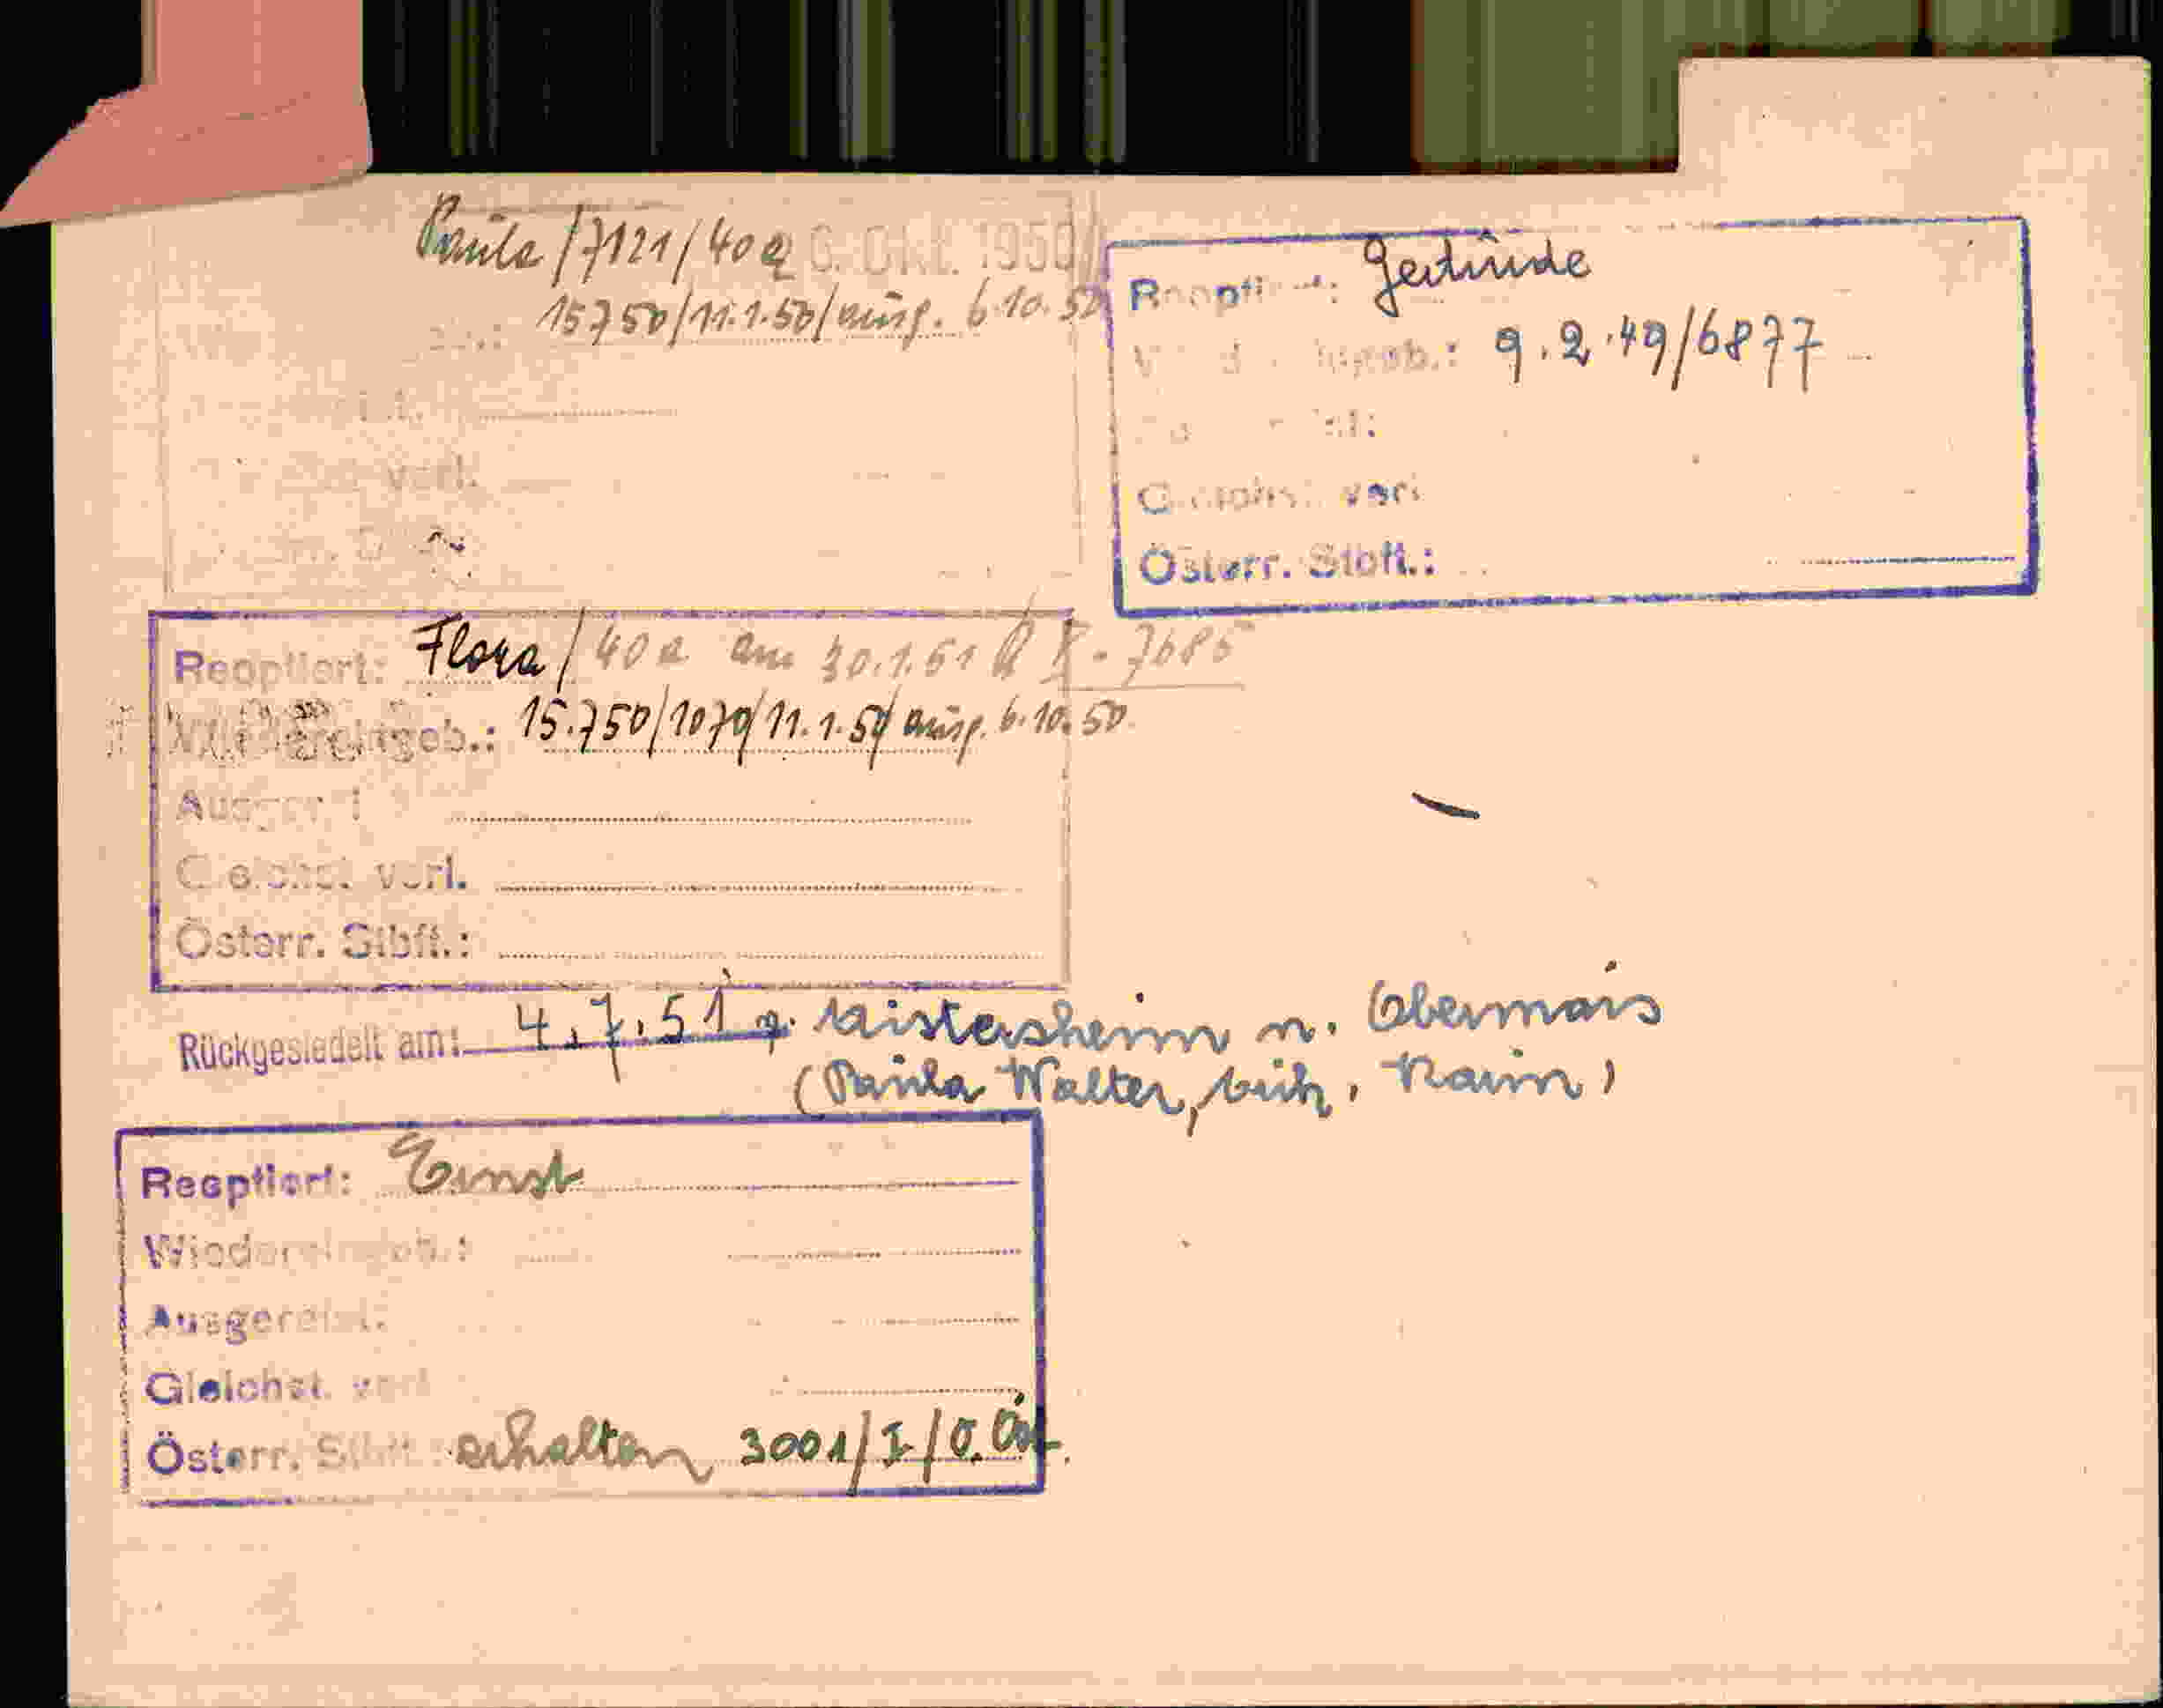 Paula / 7121 / 40 a 26. OKT. 1950
15750/11.1.50/ausg. 6.10.50
verl.
Reoptiert: Gertrude
9.2.49/6877
Gleichst. verl.
Österr. Stbft.:
Reoptiert: Flora / 40 a am 30.1.51
Wiedereingeb.: 15.750/1070/11.1.50/ausg. 6.10.50
Ausgereist
Gleichst. verl.
Österr. Stbft.:
Rückgesiedelt am: 4.7.51 n. Obermais
(Paula Walter,
Reoptiert: Ernst
Wiedereingeb.:
Ausgereist:
Gleichst. verl.
Österr. Stbft. erhalten 3001/I/O.Öst.